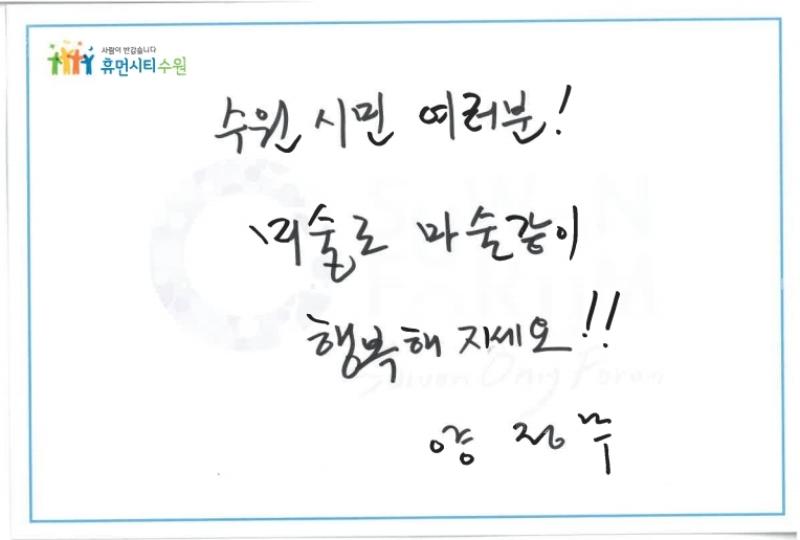 사람이 반갑습니다
휴먼시티 수원
수원 시민 여러분!
미술로 마술같이
행복해 지세요!!
양정무
SUWON
FORUM